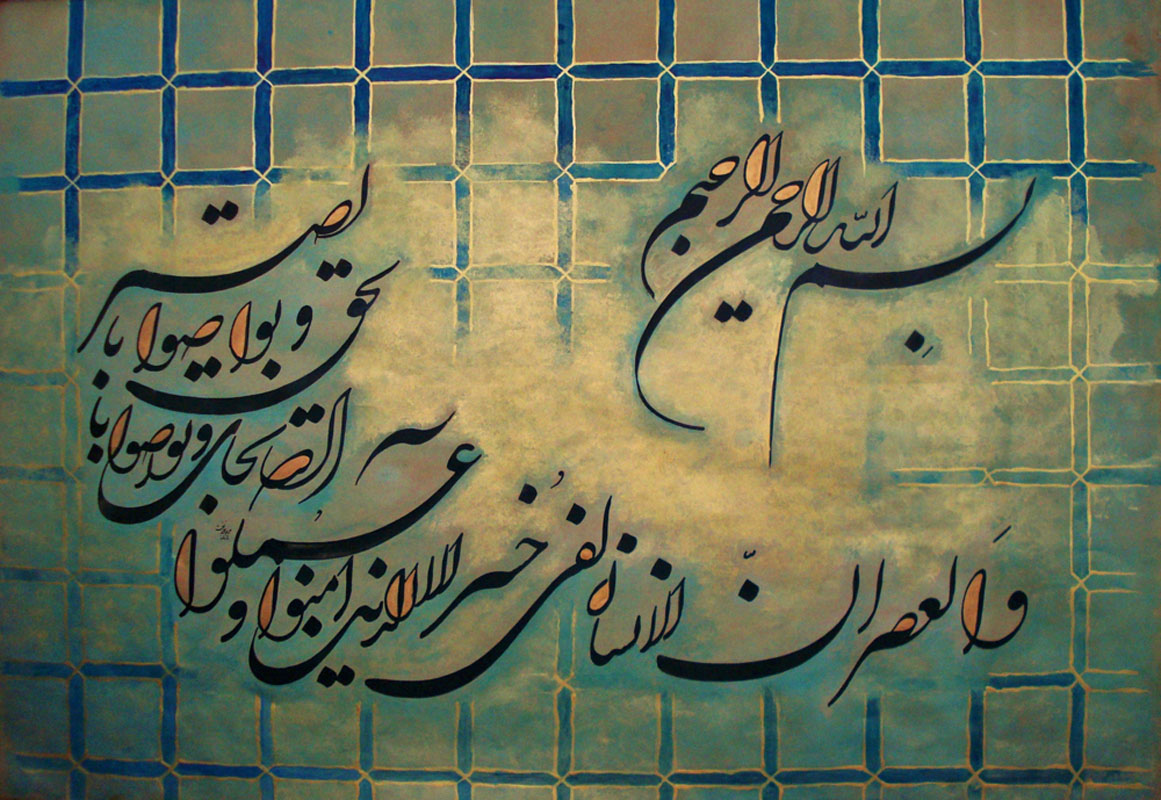 بِسم الله الرحمن الرحیم
وَالعصر ان الانسان لفی خُسر الا الذین امنوا و عملوا
الصالحات و تواصوا بالحق و تواصوا بالصبر